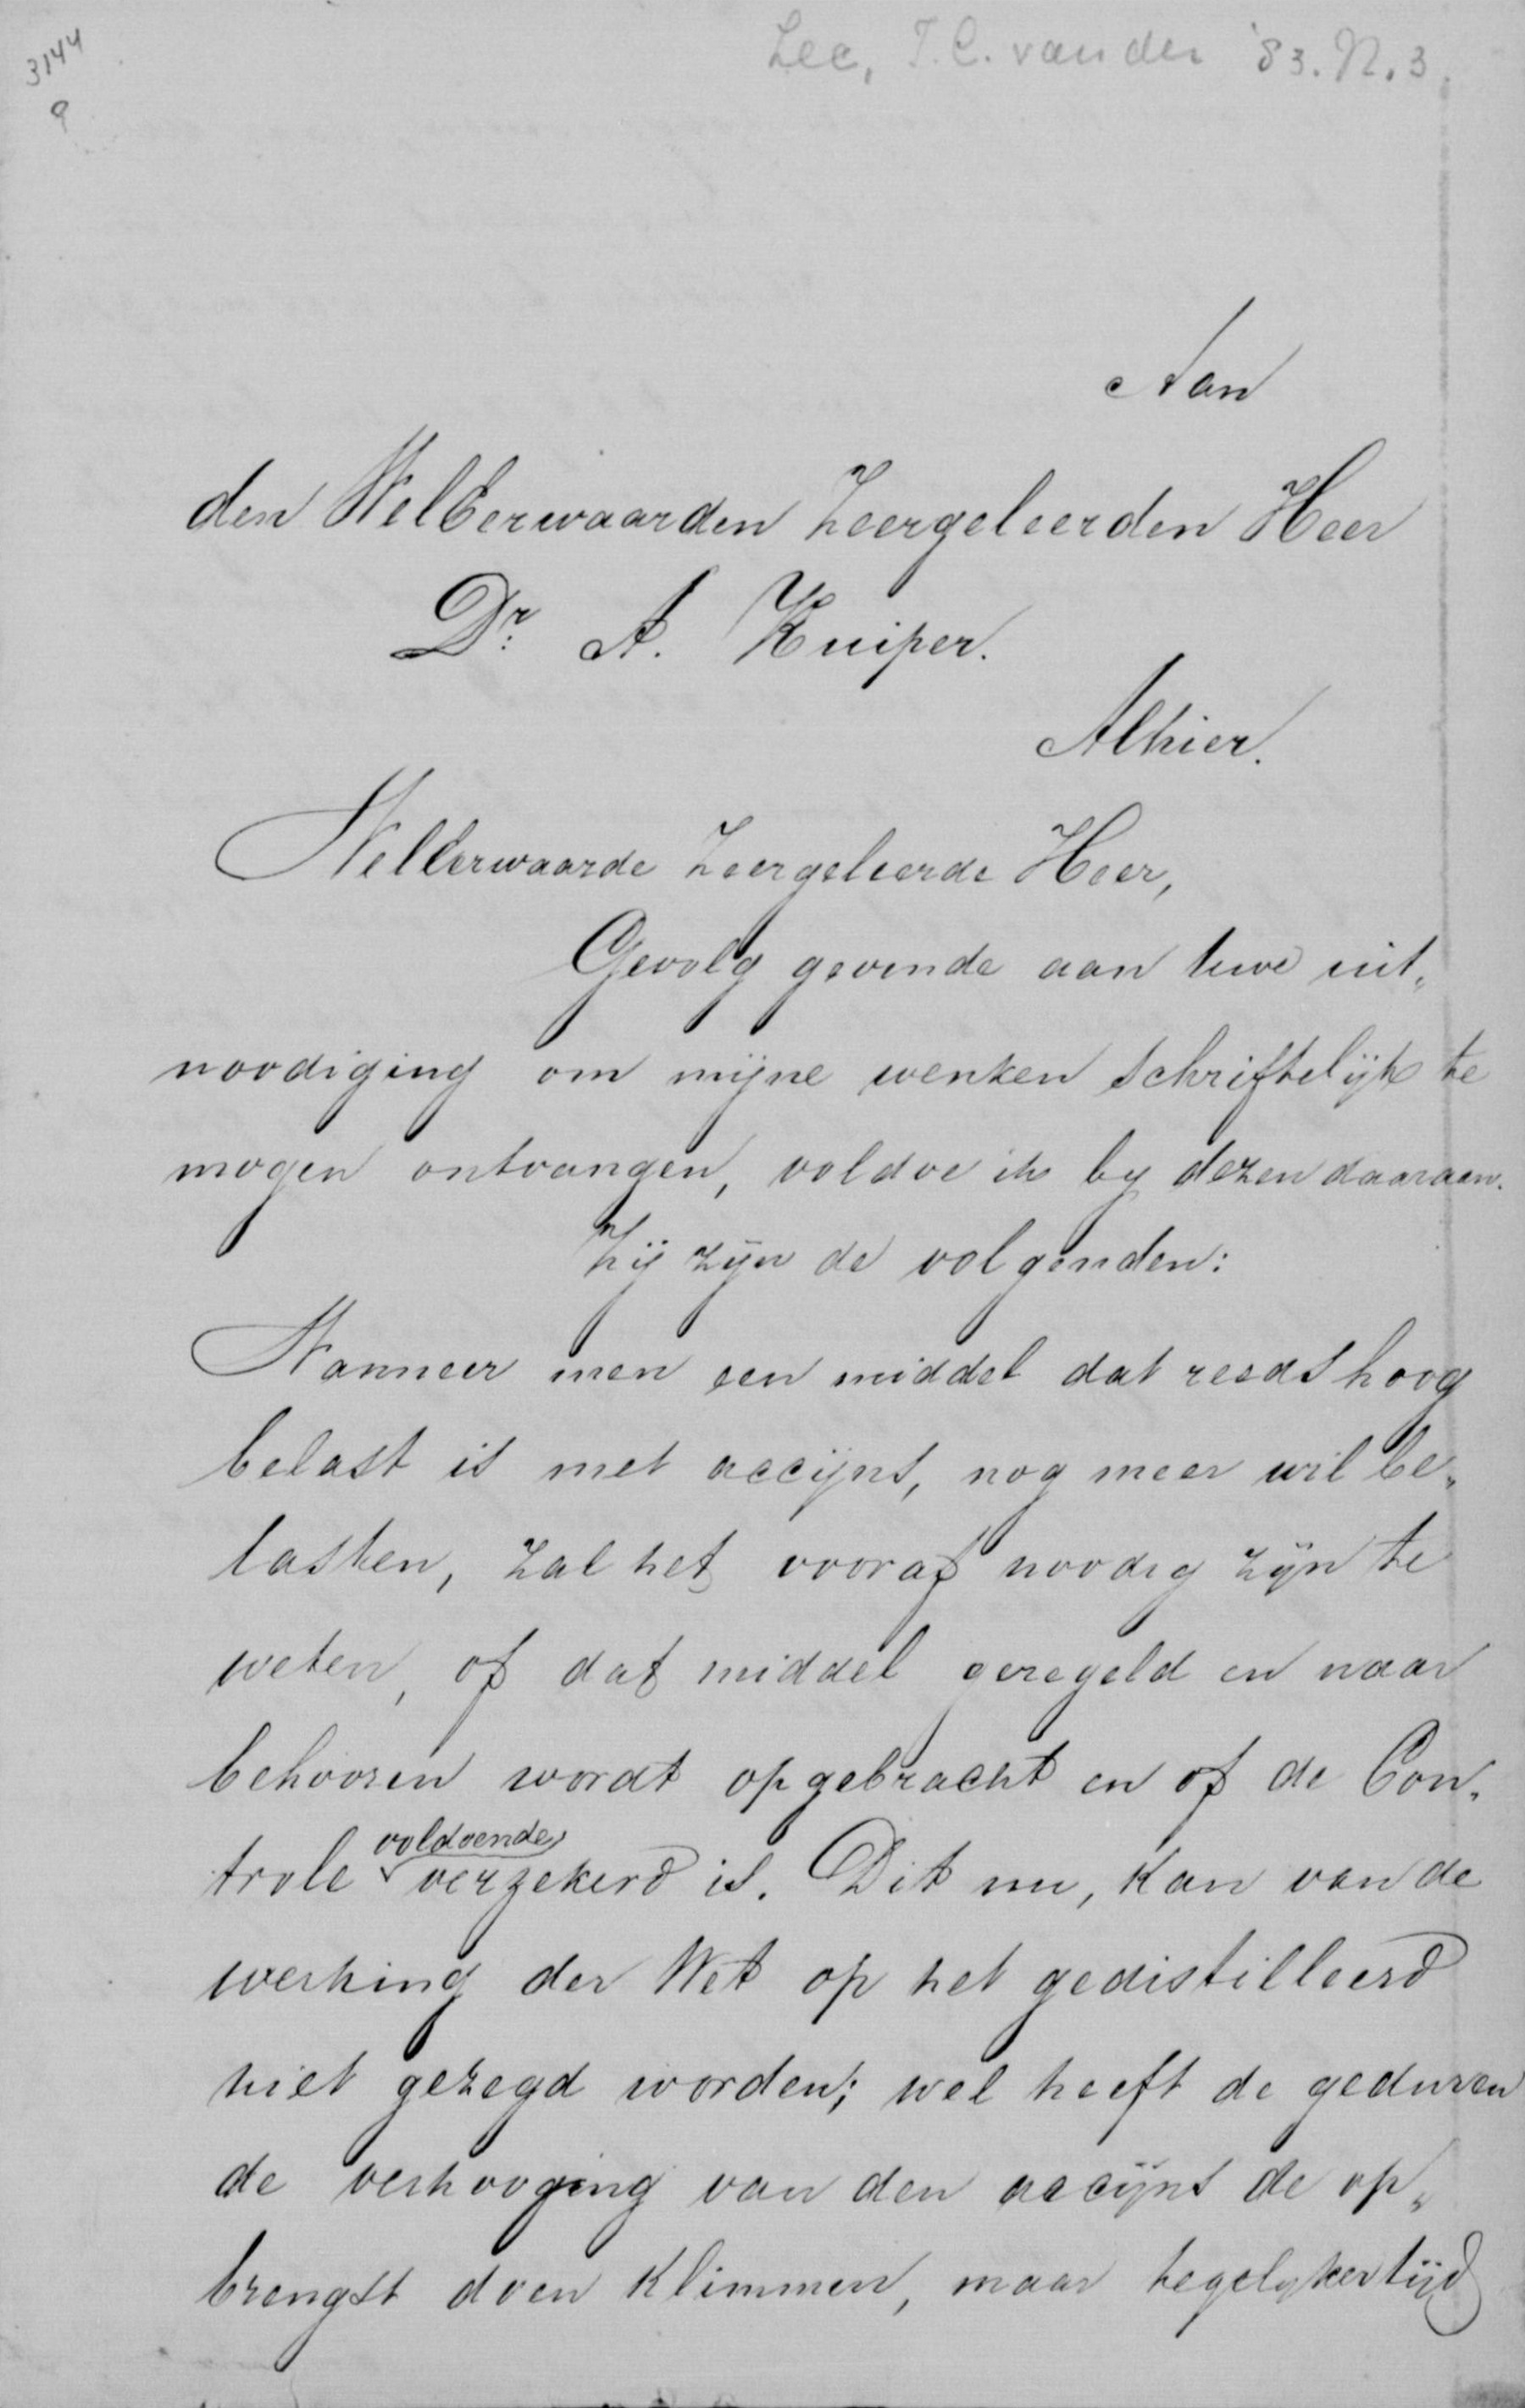 3144
9
Lee, T.C. van der '83. N. 3.
Aan
den WelEerwaarden Zeergeleerden Heer
Dr. A. Kuiper.
Alhier.
WelEerwaarde Zeergeleerde Heer,
Gevolg gevende aan Uwe uit„
noodiging om mijne wenken schriftelijk te
mogen ontvangen, voldoe ik by dezen daaraan.
Zij zijn de volgenden:
Wanneer men een middel dat reeds hoog
belast is met accijns, nog meer wil be„
lasten, zal het vooraf noodig zijn te
weten, of dat middel geregeld en naar
behooren wordt opgebracht en of de Con„
trole voldoende verzekerd is. Dit nu, kan van de
werking der Wet op het gedistilleerd
niet gezegd worden; wel heeft de geduren
de verhooging van den accijns de op„
brengst doen klimmen, maar tegelykertijd